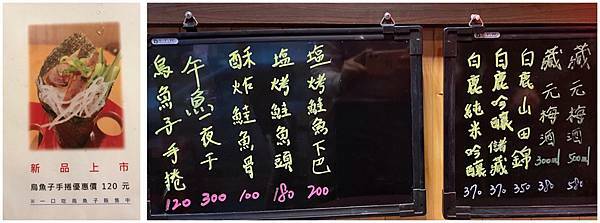 新品上市
烏魚子手捲優惠價 120 元
※一口吃烏魚子販售中
塩烤鮭魚下巴 200
塩烤鮭魚頭 180
酥炸鮭魚骨 100
午魚一夜干 300
烏魚子手捲 120
藏元梅酒 500ml 580
藏元梅酒 300ml 380
白鹿山田錦 350
白鹿吟釀儲藏 370
白鹿純米吟釀 370